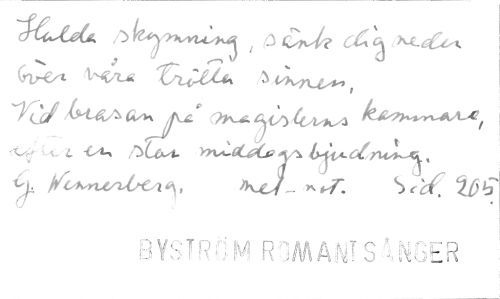 Hulda skymning, sänk dig neder
över våra trötta sinnen,
Vid brasan på magisterns kammare,
efter en stor middagsbjudning.
G. Wennerberg. mel-not. Sid. 205.
BYSTRÖM ROMANTSÅNGER